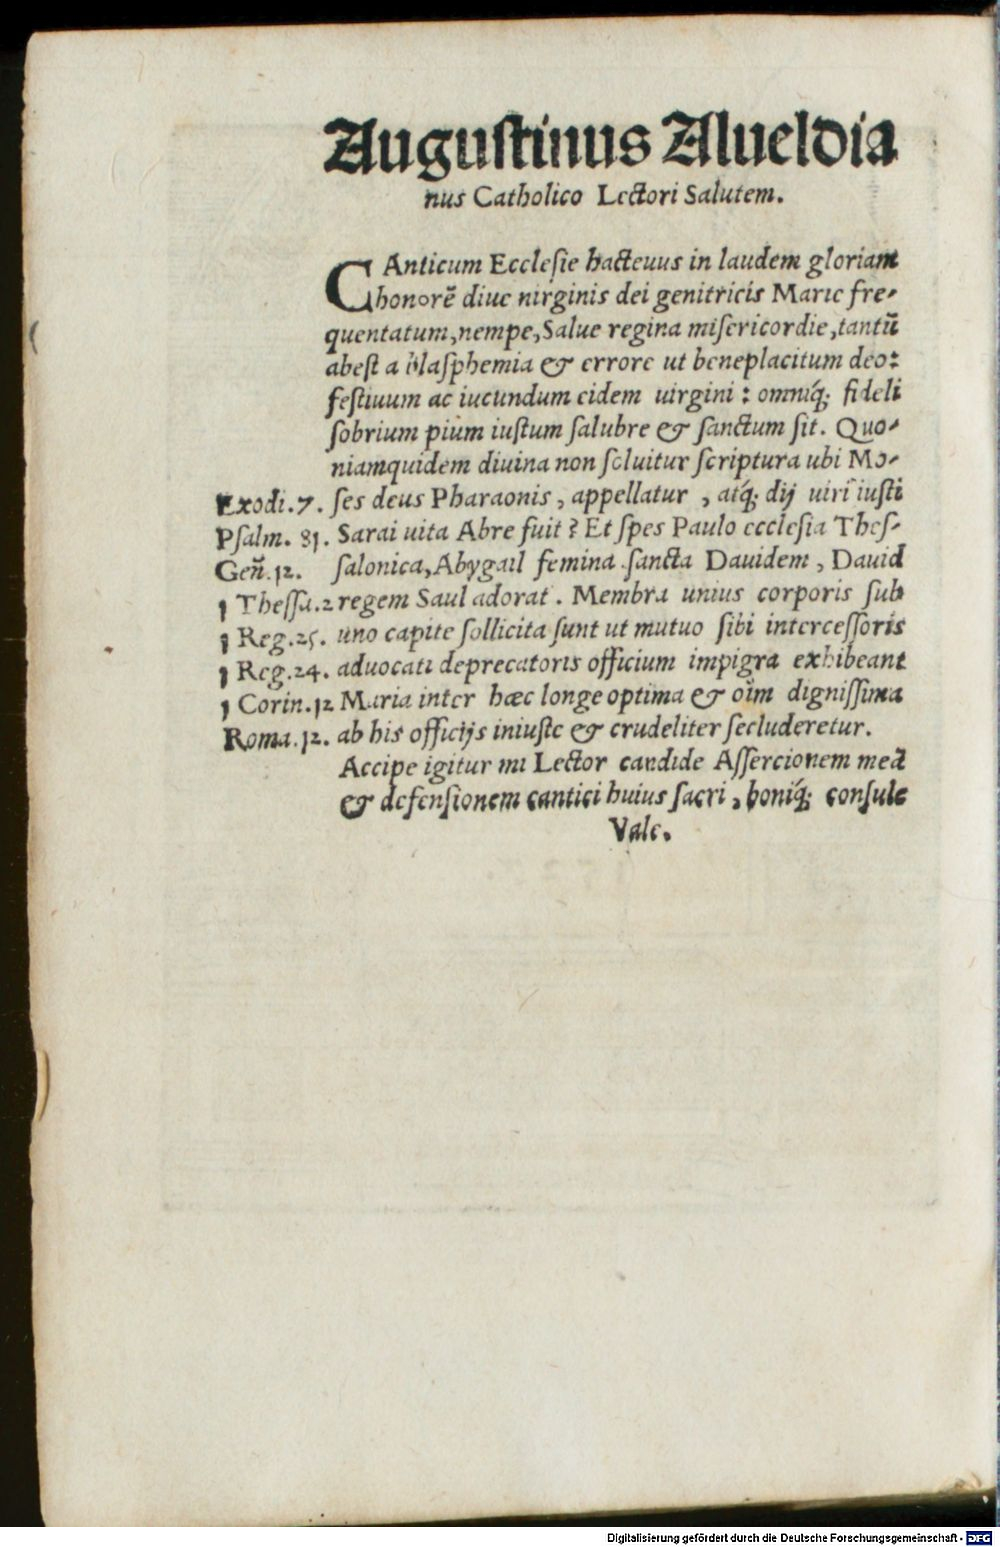 Augustinus Alueldia
nus Catholico Lectori Salutem.
CAnticum Ecclesie hacteuus in laudem gloriam
honorē diue nirginis dei genitricis Marie fre-
quentatum, nempe, Salue regina misericordie, tantū
abest a blasphemia & errore ut beneplacitum deo:
festiuum ac iucundum eidem uirgini : omniq́; fideli
sobrium pium iustum salubre & sanctum sit. Quo-
niamquidem diuina non soluitur scriptura ubi Mo-
Exodi. 7. ses deus Pharaonis, appellatur , atq́; dij uiri iusti
Psalm. 81. Sarai uita Abre fuit ? Et spes Paulo ecclesia Thes-
Geñ. 12. salonica, Abygail femina sancta Dauidem , Dauid
1 Thessa. 2 regem Saul adorat . Membra unius corporis sub
1 Reg. 25. uno capite sollicita sunt ut mutuo sibi intercessoris
1 Reg. 24. aduocati deprecatoris officium impigra exhibeant
1 Corin. 12 Maria inter hæc longe optima & oīm dignissima
Roma. 12. ab his officijs iniuste & crudeliter secluderetur.
Accipe igitur mi Lector candide Assercionem meā
& defensionem cantici huius sacri , boniq́; consule
Vale.
Digitalisierung gefördert durch die Deutsche Forschungsgemeinschaft - DFG